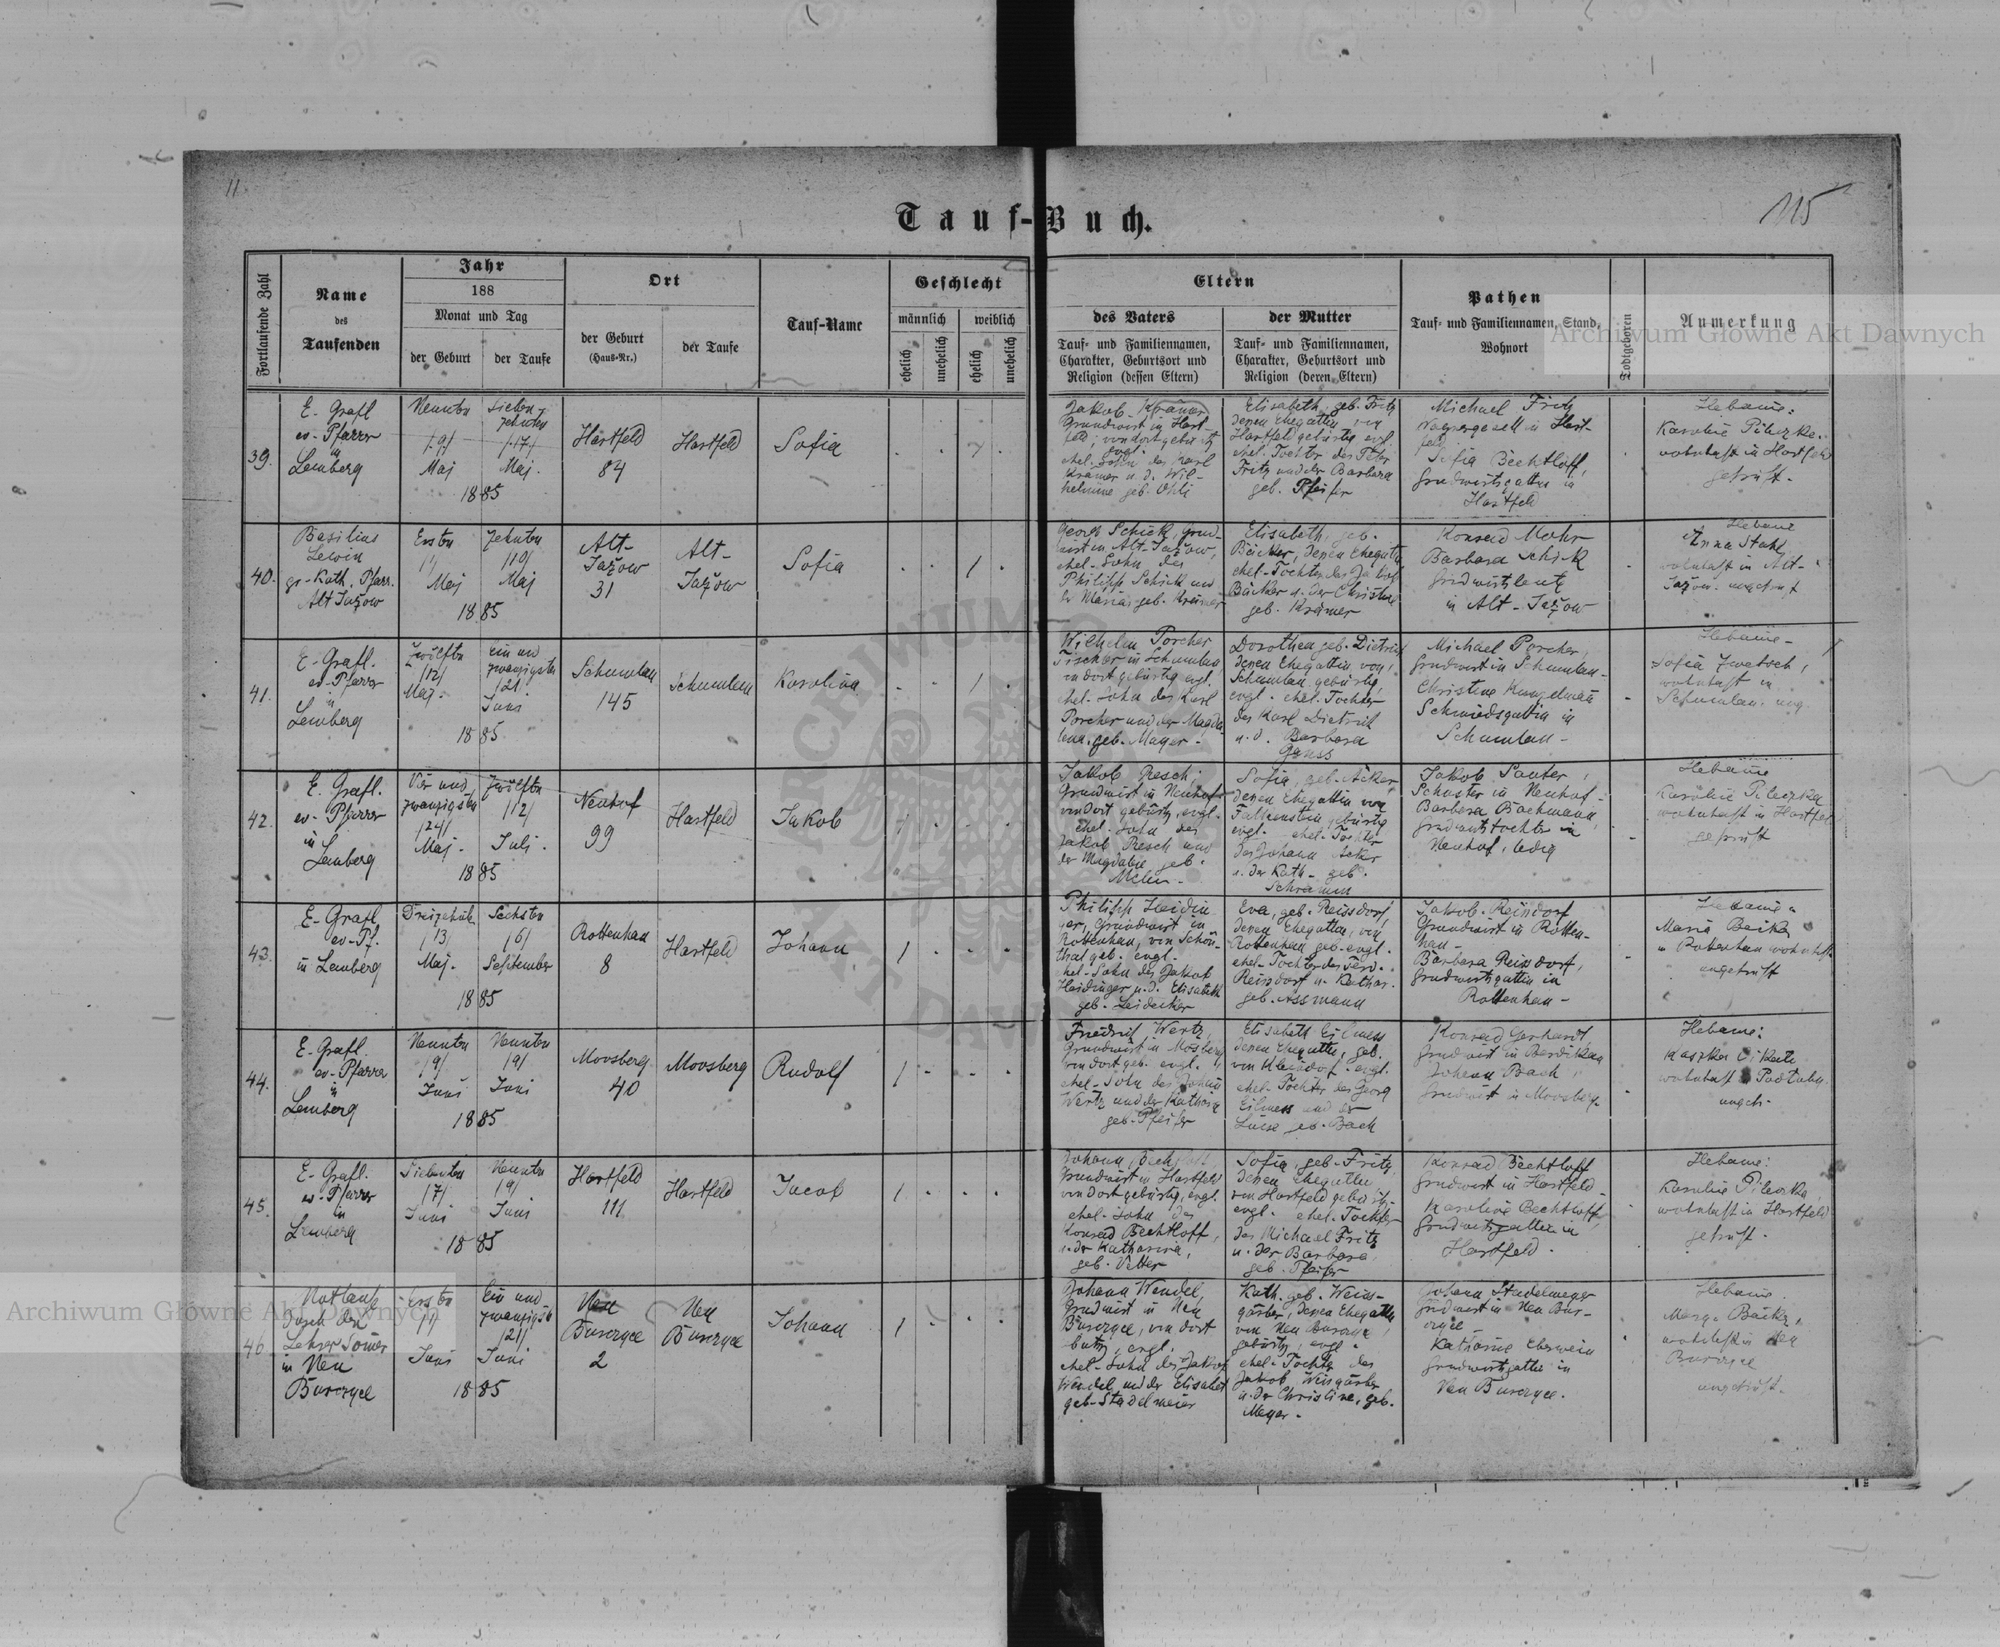 11.
115
Tauf-Buch.
Fortlaufende Zahl
Name
des
Taufenden
Jahr
188
Monat und Tag
der Geburt
der Taufe
Ort
der Geburt
(Haus-Nr.)
der Taufe
Tauf-Name
Geschlecht
männlich
weiblich
ehelich
unehelich
ehelich
unehelich
Eltern
des Vaters
Tauf- und Familiennamen,
Charakter, Geburtsort und
Religion (dessen Eltern)
der Mutter
Tauf- und Familiennamen,
Charakter, Geburtsort und
Religion (deren Eltern)
Pathen
Tauf- und Familiennamen, Stand,
Wohnort
Todtgeboren
Anmerkung
39.
E. Grafl
ev. Pfarrer
in
Lemberg
Neunten
/9/
Maj
Siebenzehnten
/17/
Maj.
1885
Hartfeld
84
Hartfeld
Sofia
Jakob Krämer
Grundwirt in Hart-
feld, von dort gebürtig
evgl.
ehel. Sohn des Karl
Krämer u. d. Wil-
helmine geb. Ohli
Elisabeth, geb. Fritz
dessen Ehegattin, von
Hartfeld gebürtig evgl.
ehel. Tochter des Peter
Fritz und der Barbara
geb. Pfeifer
Michael Fritz
Wagnergesell in Hart-
feld
Sofia Bechtloff,
Grundwirtsgattin in
Hartfeld
Hebame:
Karoline Pileczka
wohnhaft in Hartfeld
geprüft.
40.
Basilius
Lewin
gr. Kath. Pfarr.
Alt Jazow
Ersten
/1/
Maj
Zehnten
/10/
Maj
1885
Alt-
Jazow
31
Alt-
Jazow
Sofia
1
Georg Schick, Grund-
wirt in Alt-Jazow,
ehel. Sohn des
Philipp Schick und
der Maria, geb. Krämer
Elisabeth, geb.
Bäcker, dessen Ehegattin
ehel. Tochter des Jakob
Bäcker u. der Christine
geb. Krämer
Konrad Mohr
Barbara Schick
Grundwirtsleute
in Alt-Jazow
Hebame
Anna Stahl
wohnhaft in Alt-
Jazow. ungeprüft
41.
E. Grafl.
ev. Pfarrer
in
Lemberg
Zwölften
/12/
Maj.
Ein und
zwanzigsten
/21/
Juni
1885
Schumlau
145
Schumlau
Karolina
1
Wilhelm Porcher
Tischler in Schumlau
von dort gebürtig evgl.
ehel. Sohn des Karl
Porcher und der Magda-
lena, geb. Mayer.
Dorothea geb. Dietrich
dessen Ehegattin, von
Schumlau gebürtig,
evgl. ehel. Tochter
des Karl Dietrich
u. d. Barbara
Gauss
Michael Porcher,
Grundwirt in Schumlau.
Christine Kunzelman
Schmiedsgattin in
Schumlau
Hebame
Sofia Zwetsch,
wohnhaft in
Schumlau. ung.
42.
E. Grafl.
ev. Pfarrer
in
Lemberg
Vier und
zwanzigsten
/24/
Maj.
Zwölften
/12/
Juli.
1885
Neuhof
99
Hartfeld
Jakob
1
Jakob Resch,
Grundwirt in Neuhof
von dort gebürtig, evgl.
ehel. Sohn des
Jakob Resch und
der Magdalie geb.
Sofia, geb. Acker,
dessen Ehegattin von
Falkenstein gebürtig
evgl. ehel. Tochter
des Johann Acker
u. der Kath. geb.
Schramm
Jakob Sauter,
Schuster in Neuhof.
Barbara Bachmann,
Grundwirtstochter in
Neuhof, ledig
Hebame
Karoline Pileczka
wohnhaft in Hartfeld
geprüft
43.
E. Grafl
ev. Pf.
in Lemberg
Dreizehnten
/13/
Maj.
Sechsten
/6/
September
1885
Rottenhan
8
Hartfeld
Johann
1
Philipp Heidin-
ger, Grundwirt in
Rottenhan, von Schön-
thal geb. evgl.
ehel. Sohn des Jakob
Heidinger u. d. Elisabeth
geb. Leidecker
Eva, geb. Reissdorf,
dessen Ehegattin, von
Rottenhan geb. evgl.
ehel. Tochter des Ferd.
Reissdorf u. Kathar.
geb. Assmann
Jakob Reissdorf
Grundwirt in Rotten-
han
Barbara Reissdorf,
Grundwirtsgattin in
Rottenhan
Hebame
Maria Becker
in Rottenhan wohnhaft
ungeprüft
44.
E. Grafl.
ev. Pfarrer
in
Lemberg
Neunten
/9/
Juni
Neunten
/9/
Juni
1885
Moosberg
40
Moosberg
Rudolf
1
Friedrich Wertz,
Grundwirt in Mosberg
von dort geb. evgl.
ehel. Sohn des Johann
Wertz und der Katharina
geb. Pfeifer
Elisabeth Eilmess
dessen Ehegattin, geb.
von Kleindorf evgl.
ehel. Tochter des Georg
Eilmess und der
Luise geb. Bach
Konrad Gerhardt,
Grundwirt in Berdikau
Johann Bach,
Grundwirt in Moosberg.
Hebame:
wohnhaft in
45.
E. Grafl.
ev. Pfarrer
in
Lemberg
Siebenten
/7/
Juni
Neunten
/9/
Juni
1885
Hartfeld
111
Hartfeld
Jacob
1
Johann Bechtloff
Grundwirt in Hartfeld
von dort gebürtig, evgl.
ehel. Sohn des
Konrad Bechtloff,
u. der Katharina,
geb. Vetter
Sofia, geb. Fritz
dessen Ehegattin
von Hartfeld gebürtig.
evgl. ehel. Tochter
des Michael Fritz
u. der Barbara
geb. Pfeifer
Konrad Bechtloff
Grundwirt in Hartfeld
Karoline Bechtloff
Grundwirtsgattin in
Hartfeld.
Hebame:
Karoline Pileczka,
wohnhaft in Hartfeld
geprüft.
46.
Nottaufe
durch den
Lehrer
in Neu
Burczyce
Ersten
/1/
Juni
Ein und
zwanzigsten
/21/
Juni
1885
Neu
Burczyce
2
Neu
Burczyce
Johann
1
Johann Wendel,
Grundwirt in Neu
Burczyce, von dort
gebürtig, evgl.
ehel. Sohn des Jakob
Wendel und der Elisabet
geb. Stadelmeier
Kath. geb. Wein-
gärtner, dessen Ehegattin
von Neu Burczyce,
gebürtig, evgl.
ehel. Tochter des
Jakob Weingärtner
u. der Christine, geb.
Meyer.
Johann Stadelmeyer
Grundwirt in Neu Bur-
czyce
Katharine Eberwein
Grundwirtsgattin in
Neu Burczyce.
Hebame.
Marg. Bäcker,
wohnhaft in Neu
Burczyce
ungeprüft.
Archiwum Główne Akt Dawnych
Archiwum Główne Akt Dawnych